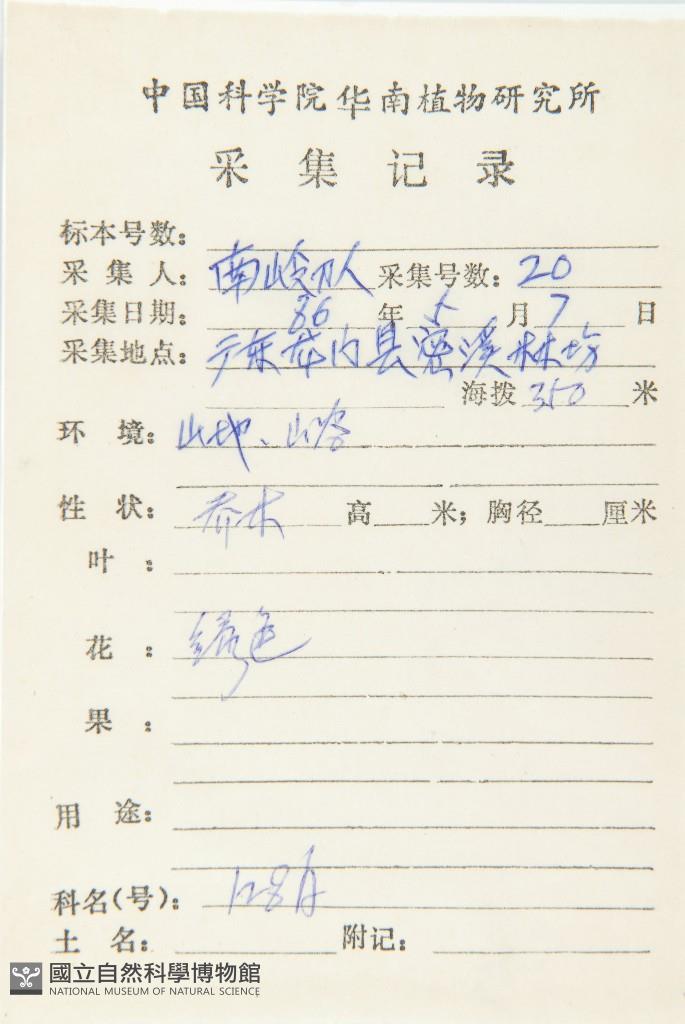 中国科学院华南植物研究所
采集记录
标本号数:
采集人: 南岭队 采集号数: 20
采集日期: 86 年 5 月 7 日
采集地点: 广东 县密溪林场
海拨 350 米
环境: 山地、山谷
性状: 乔木 高 米; 胸径 厘米
叶:
花: 绿色
果:
用途:
科名(号): 128A
土名: 附记:
國立自然科學博物館
NATIONAL MUSEUM OF NATURAL SCIENCE